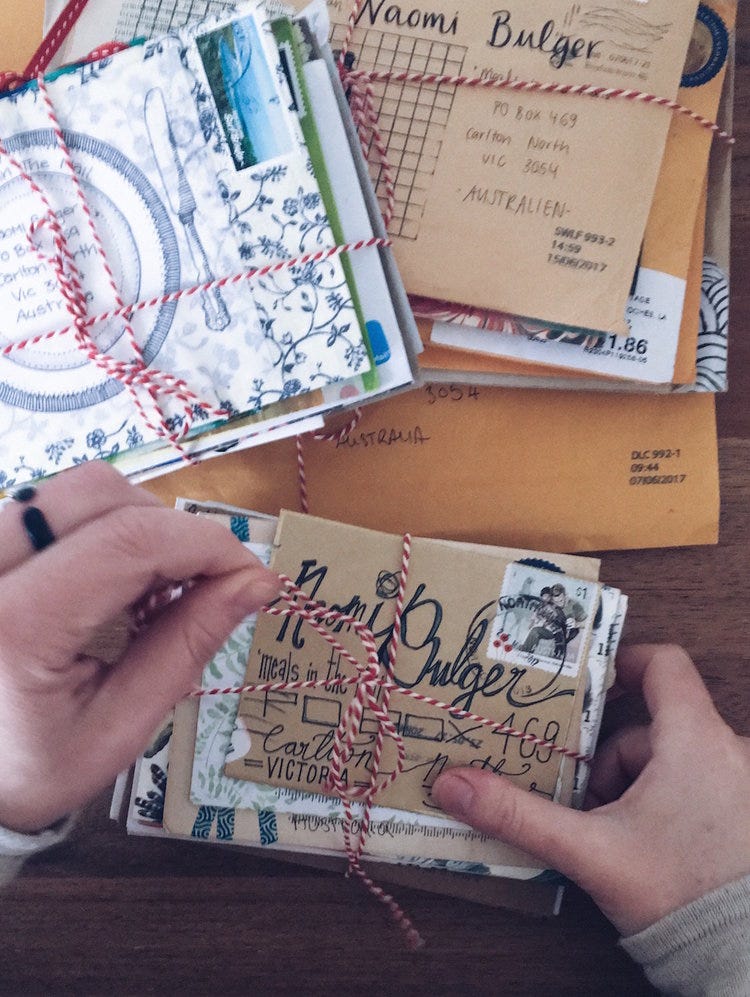 Naomi Bulger
PO BOX 469
Carlton North
VIC 3054
-AUSTRALIEN-
SWLF 993-2
14:59
15/06/2017
in The Mail
Naomi Bulger
Po Box 469
Carlton North
Vic 3054
Australia
1.86
3054
AUSTRALIA
DLC 992-1
09:44
07/06/2017
$1
Naomi Bulger
'meals in the
BOX 469
Carlton North
=VICTORIA=